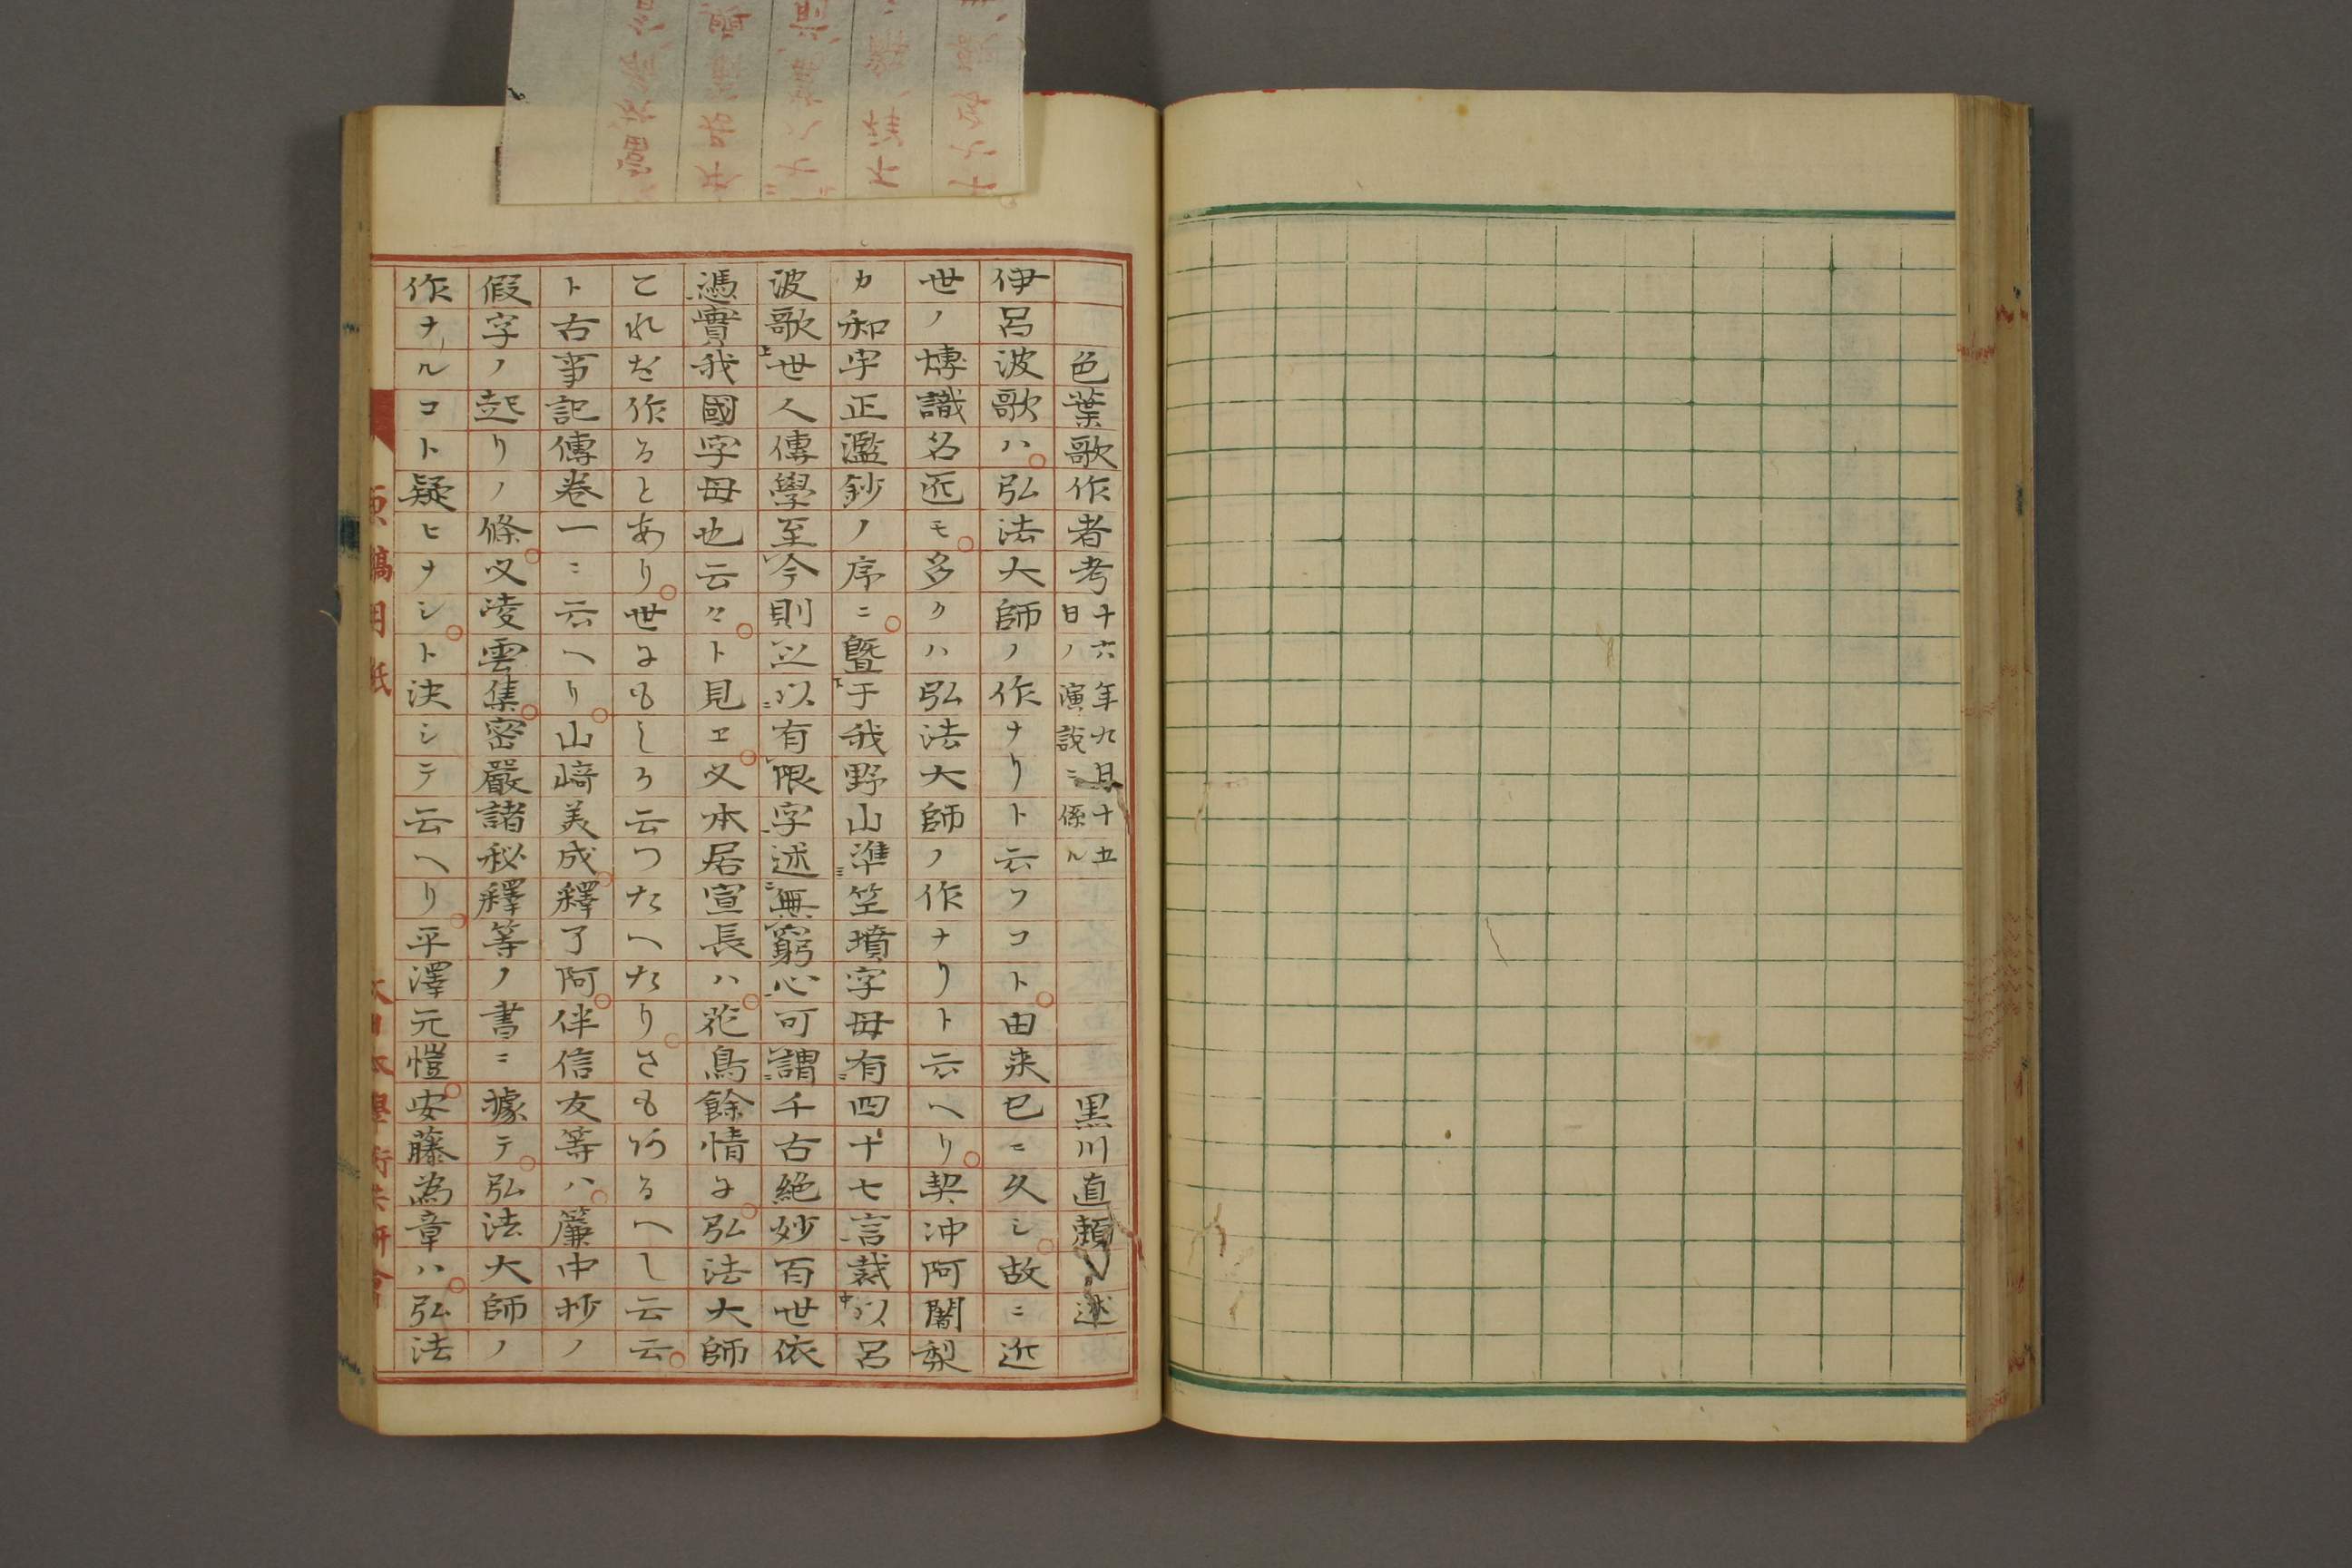 色葉歌作者考 十六年九月十五日ノ演説ニ係ル 黒川直頼述
伊呂波歌ハ弘法大師ノ作ナリト云フコト由来已ニ久シ故ニ近
世ノ博識名匠モ多クハ弘法大師ノ作ナリト云ヘリ契沖阿闍梨
カ和字正濫鈔ノ序ニ曁下于我野山準三竺墳字母有二四十七言一裁中以呂
波歌上世人傳學至今則並以二有限字一述二無窮心一可謂二千古絶妙百世依
憑實我國字母也云々ト見ヱ又本居宣長ハ花鳥餘情に弘法大師
これを作るとあり世にもしか云つたへたりさも阿るへし云云
ト古事記傳卷一ニ云ヘリ山﨑美成釋了阿伴信友等ハ簾中抄ノ
假字ノ起リノ條又凌雲集密嚴諸秘釋等ノ書ニ據テ弘法大師ノ
作ナルコト疑ヒナシト決シテ云ヘリ平澤元愷安藤為章ハ弘法
原稿用紙
大日本學術共研會